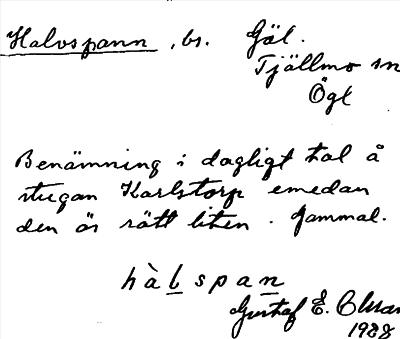 Halvspann, bs. Göl.
Tjällmo sn
Ögl
Benämning i dagligt tal å
stugan Karlstorp emedan
den är rätt liten. Gammal.
hàlspan
Gustaf E. Olsson
1928